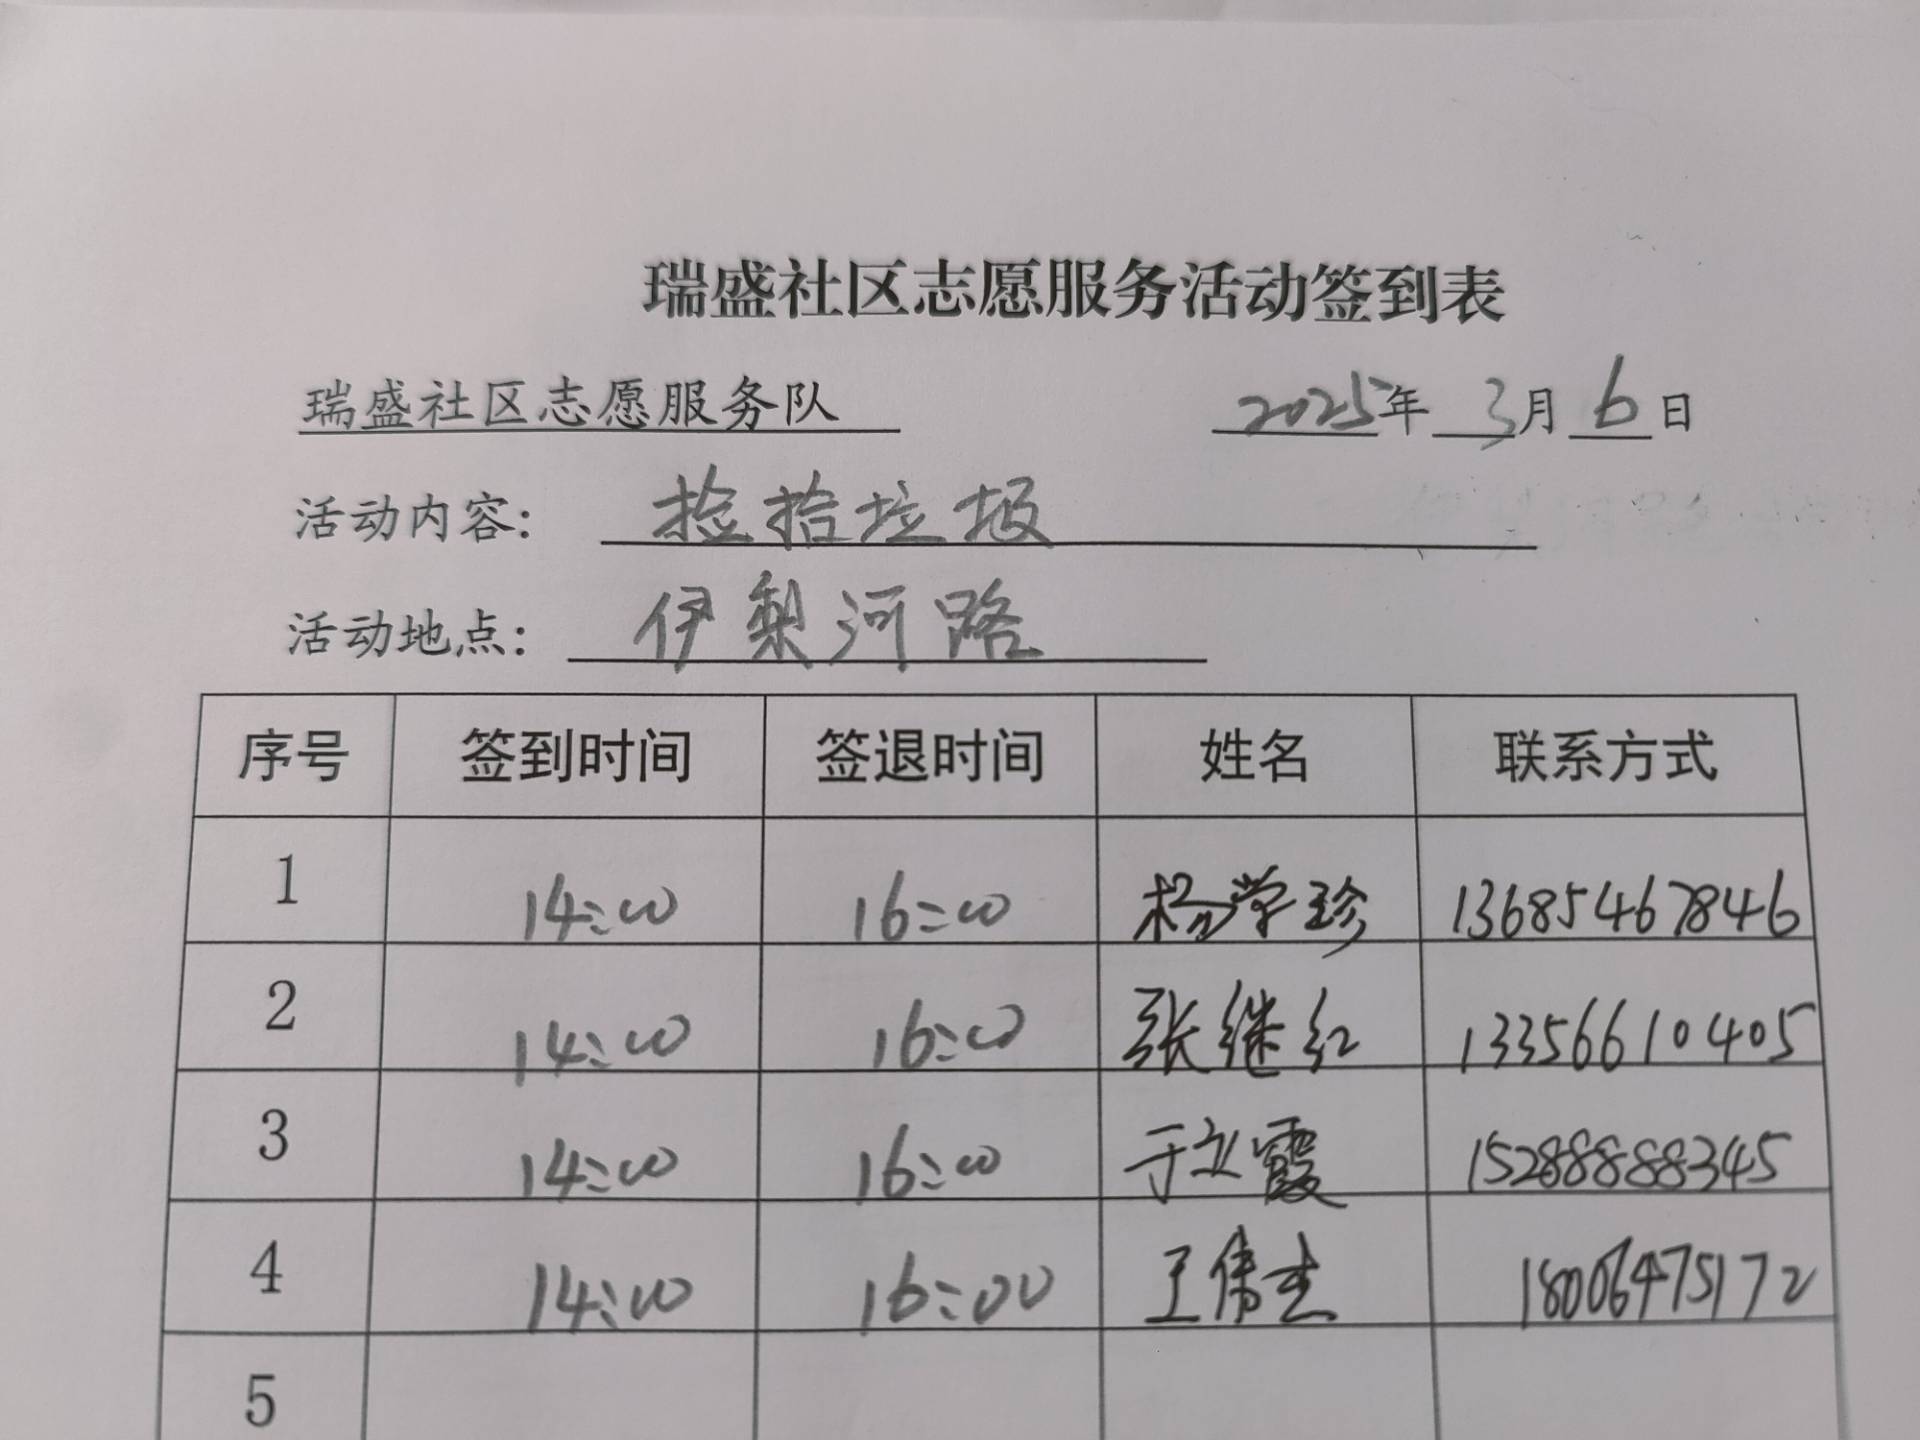 瑞盛社区志愿服务活动签到表
瑞盛社区志愿服务队 2025年 3月 6日
活动内容: 捡拾垃圾
活动地点: 伊梨河路
序号 签到时间 签退时间 姓名 联系方式
1 14:00 16:00 杨学珍 13685467846
2 14:00 16:00 张继红 13356610405
3 14:00 16:00 于文霞 15288888345
4 14:00 16:00 王伟杰 18006475172
5